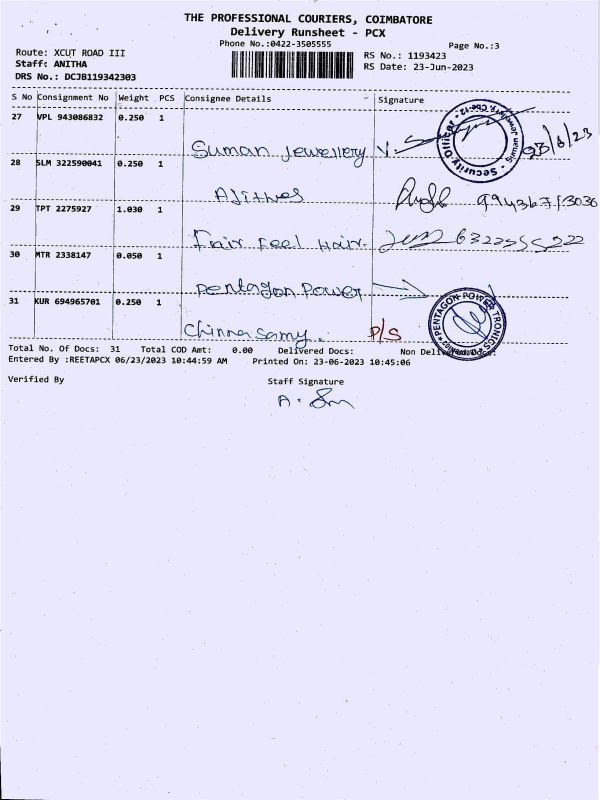 THE PROFESSIONAL COURIERS, COIMBATORE
Delivery Runsheet - PCX
Phone No.:0422-3505555
Page No.:3
Route: XCUT ROAD III
Staff: ANITHA
DRS No.: DCJB119342303
RS No.: 1193423
RS Date: 23-Jun-2023
S No Consignment No Weight PCS Consignee Details Signature
27 VPL 943086832 0.250 1
Suman Jewellery 23/6/23
Security Officer
28 SLM 322590041 0.250 1
29 TPT 2275927 1.030 1
Fair Feel Hair.
30 MTR 2338147 0.050 1
Pentagon Power
PENTAGON POWER TRONICS
31 KUR 694965701 0.250 1
Chinna Samy. P/S
Total No. Of Docs: 31 Total COD Amt: 0.00 Delivered Docs: Non Delivered Docs:
Entered By :REETAPCX 06/23/2023 10:44:59 AM Printed On: 23-06-2023 10:45:06
Verified By Staff Signature